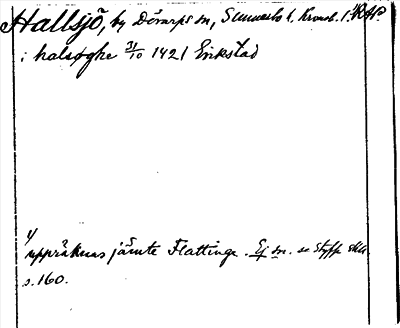 Hallsjö, by Dörarps sn, Sunnerbo h. Kronob. l. RAP.
i halsøghe 31/10 1421 Erikstad
1/
uppräknas jämte Flattinge. Ej sn. se Styffe SkU.
s. 160.